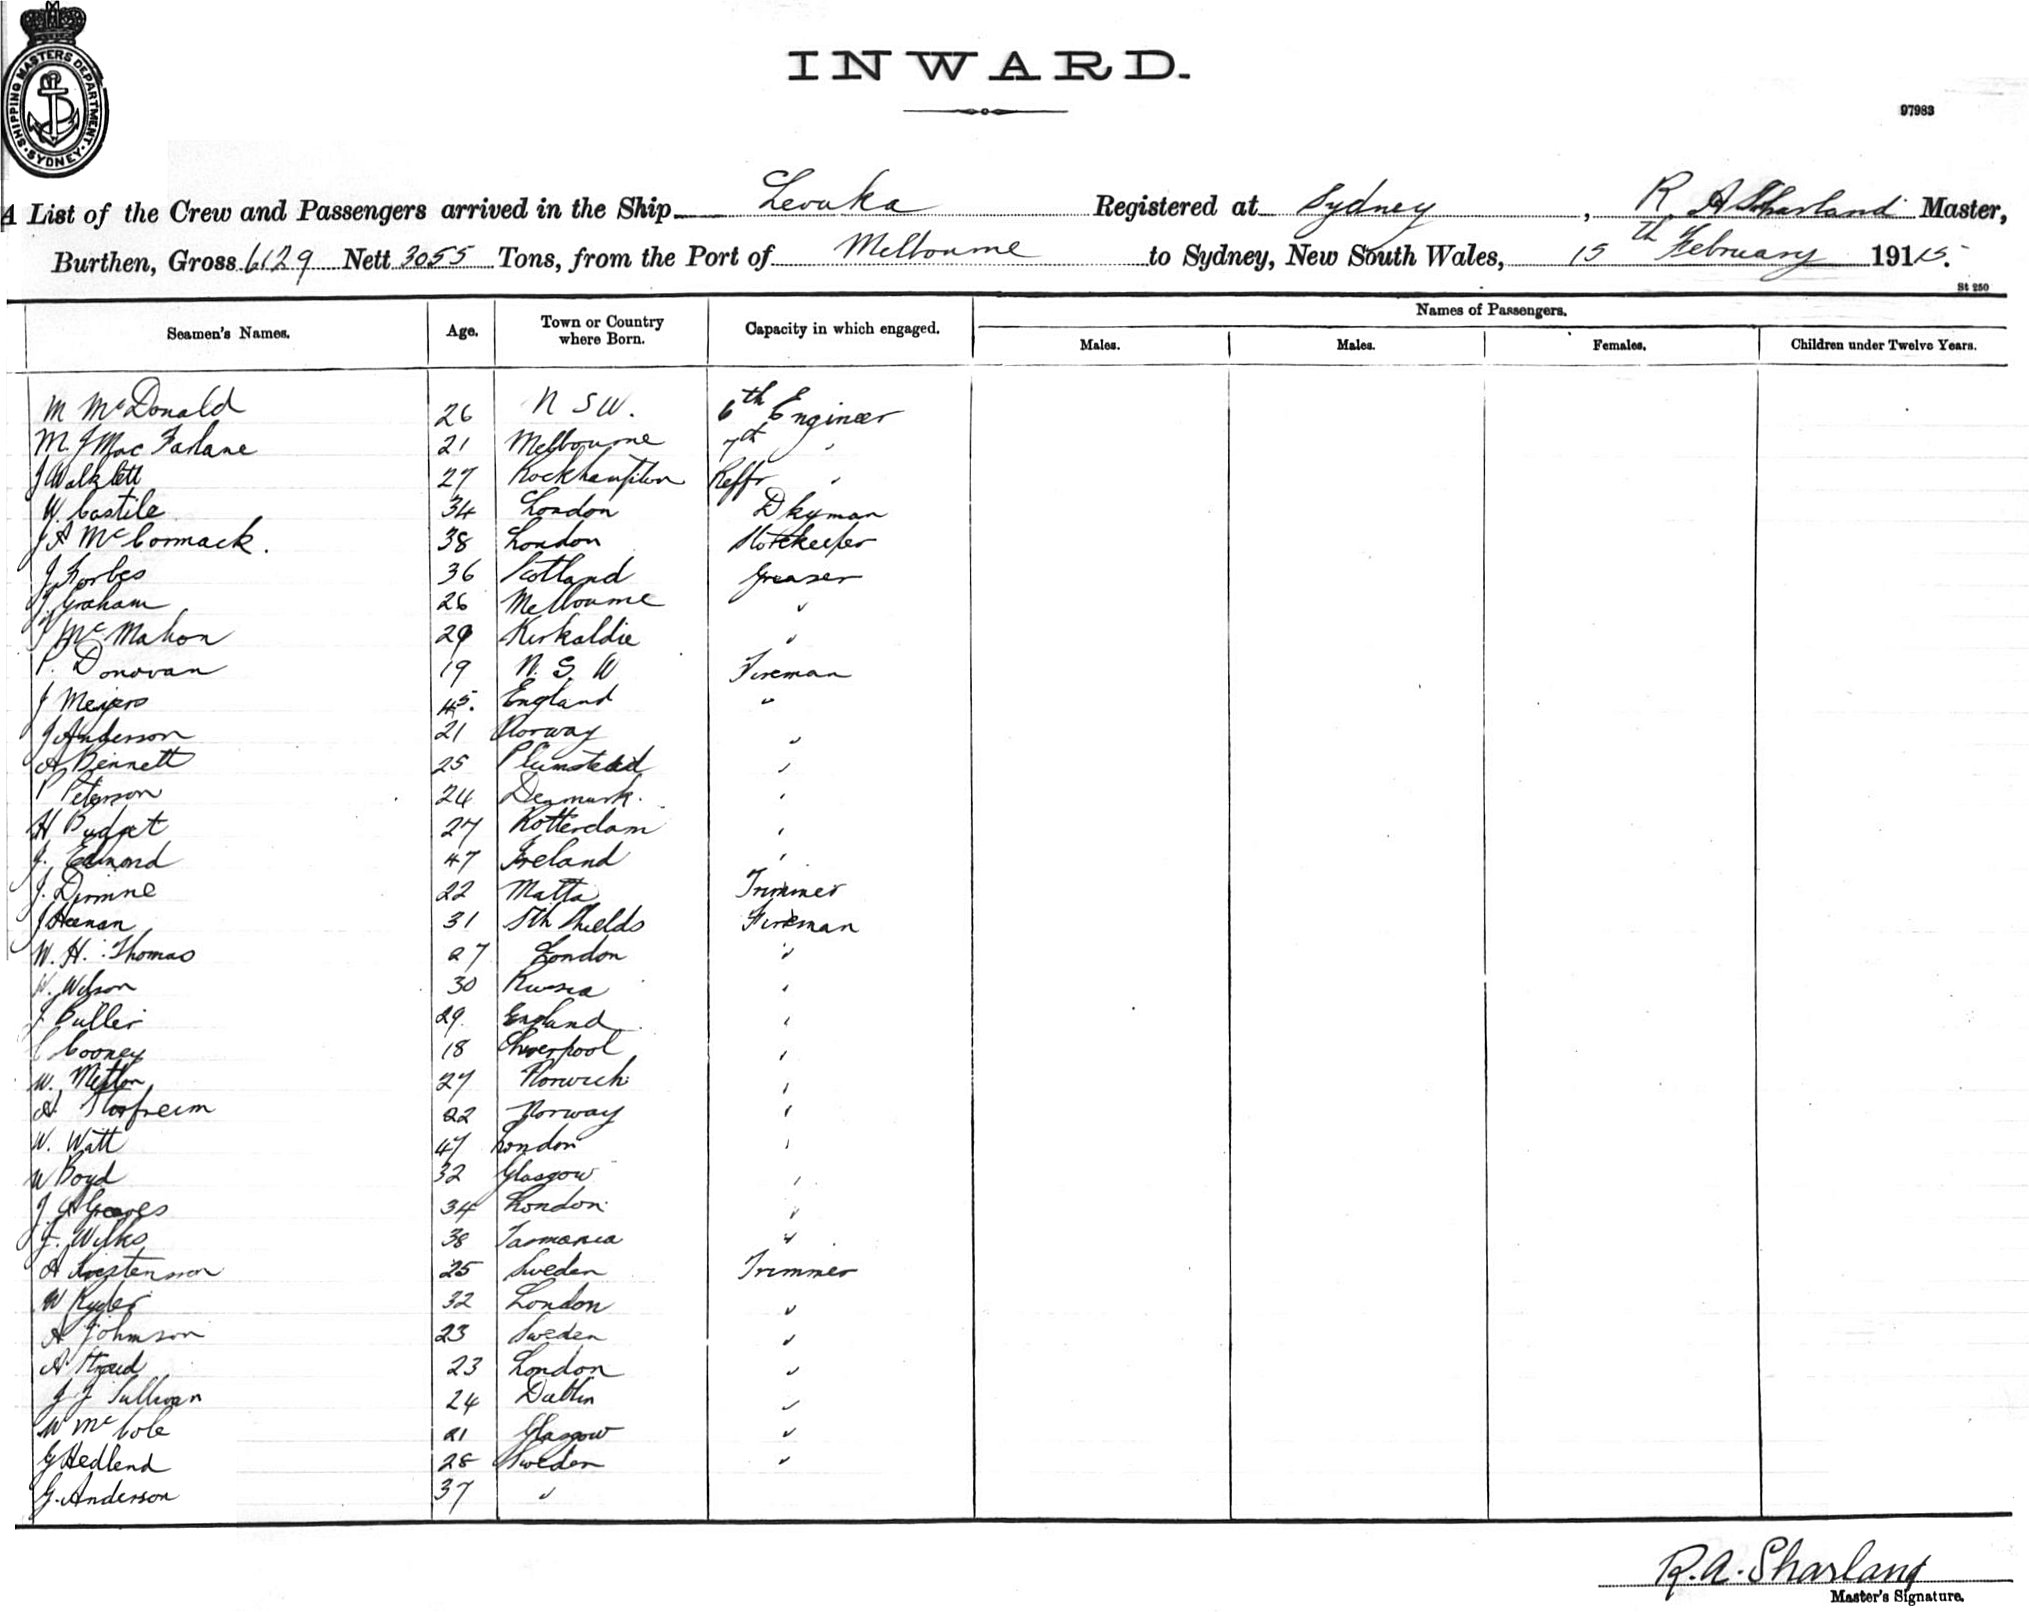 SHIPPING MASTERS DEPARTMENT. SYDNEY.
INWARD.
97983
A List of the Crew and Passengers arrived in the Ship Levuka Registered at Sydney, R. A Sharland Master,
Burthen, Gross 6129 Nett 3055 Tons, from the Port of Melbourne to Sydney, New South Wales, 15th February 19115.
St 250
Seamen's Names. Age. Town or Country where Born. Capacity in which engaged. Names of Passengers.
Males. Males. Females. Children under Twelve Years.
M McDonald 26 N S W. 6th Engineer
M. J Mac Farlane 21 Melbourne 7th "
J 27 Rockhampton Reffr "
W. Castile 34 London Dkyman
J A McCormack. 38 London Storekeeper
J Forbes 36 Scotland Greaser
J. Graham 26 Melbourne "
McMahon 29 Kirkaldie "
P. Donovan 19 N. S. W Fireman
J Meyers 45. England "
J Anderson 21 Norway "
A Bennett 25 Plumstead "
P Peterson 24 Denmark. "
H 27 Rotterdam "
J. Edmond 47 Ireland "
J. 22 Malta Trimmer
J Heenan 31 Sth Shields Fireman
W. H. Thomas 27 London "
W. Wilson 30 Russia "
J Buller 29. England "
C Cooney 18 Liverpool "
W. 27 Norwich "
A. 22 Norway "
W. Watt 47 London "
W Boyd 32 Glasgow "
J. A Greaves 34 London. "
J. Wilks 38 Tasmania "
A 25 Sweden Trimmer
W Ryder 32 London "
A Johnson 23 Sweden "
A. Stroud 23 London "
J J Sullivan 24 Dublin "
W McCole 21 Glasgow "
G Hedlend 28 Sweden "
G. Anderson 37 "
R. A. Sharland
Master's Signature.